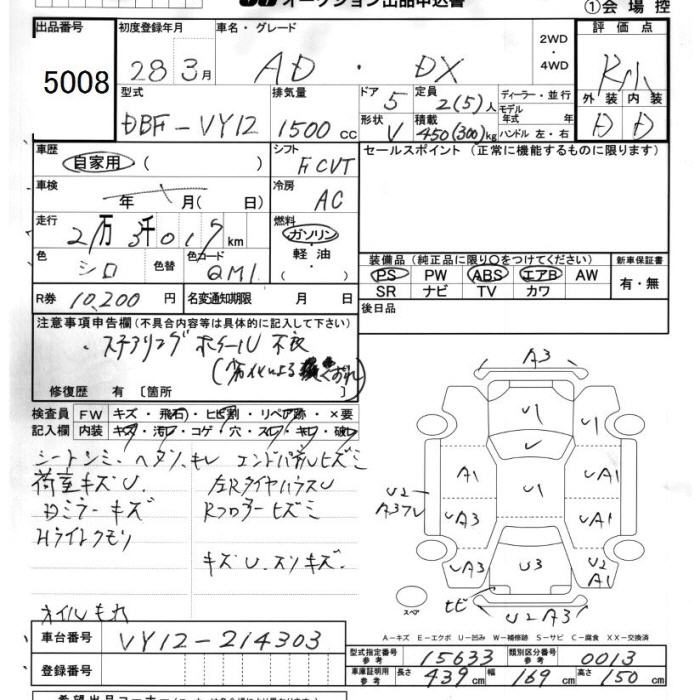 オークション出品申込書
①会場控
出品番号 初度登録年月 車名・グレード 2WD・4WD 評価点
5008 28 3月 AD・DX
型式 排気量 ドア 5 定員 2(5)人 ディーラー・並行 外装 内装
DBF-VY12 1500cc 形状 V 積載 450(300)kg モデル年式 年 D D
ハンドル 左・右
車歴 自家用 ( ) シフト FCVT セールスポイント (正常に機能するものに限ります)
車検 年 月( 日) 冷房 AC
走行 2万3千019km 燃料 ガソリン・軽油・( )
色 シロ 色替 色コード QM1 装備品 (純正品に限り○をつけてください) 新車保証書
PS PW ABS エアB AW 有・無
SR ナビ TV カワ
R券 10,200円 名変通知期限 月 日 後日品
注意事項申告欄 (不具合内容等は具体的に記入して下さい)
・ステアリングホイール不良
修復歴 有 〔箇所 〕
検査員 FW キズ・飛石・ヒビ割・リペア跡・×要
記入欄 内装 キズ・汚レ・コゲ・穴・スレ・キレ・破レ
シートシミ・ヘタリ、キレ エンドパネルヒズミ
荷室キズU. 左RタイヤハウスU
Dミラーキズ Rフロアーヒズミ
Hライトクモリ
キズU.スリキズ.
オイルモレ
A3
U1
U
A1 U1 UA1
U2
A3フレ
UA3 UA3
UA3 U3 U2
A1
ヒビ U2A3
スペア
A－キズ E－エクボ U－凹み W－補修跡 S－サビ C－腐食 XX－交換済
車台番号 VY12-214303
型式指定番号 参考 15633 類別区分番号 参考 0013
登録番号 車庫証明用 参考 長さ 439cm 幅 169cm 高さ 150cm
希望出品コーナー